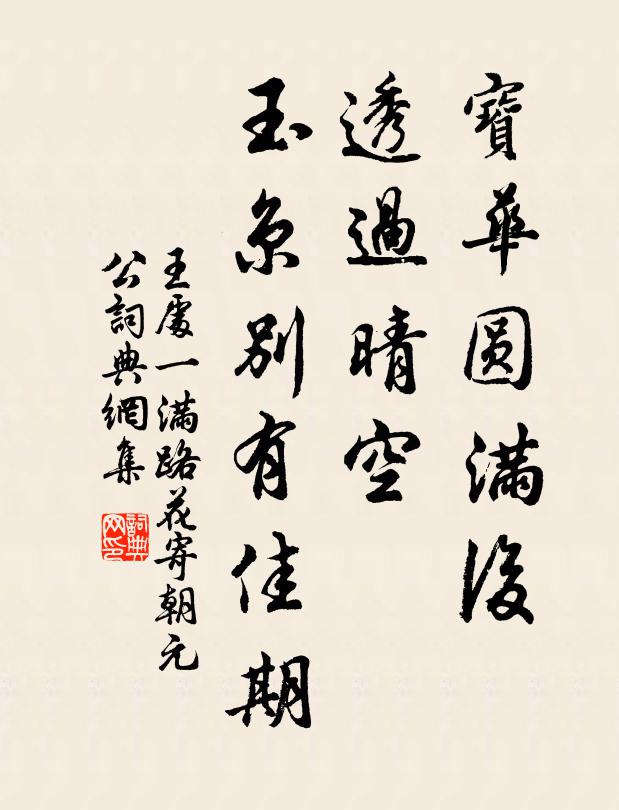 寶華圓滿後
透過晴空
玉京別有佳期
王處一滿路花寄朝元
公詞典網集
詞典
网印